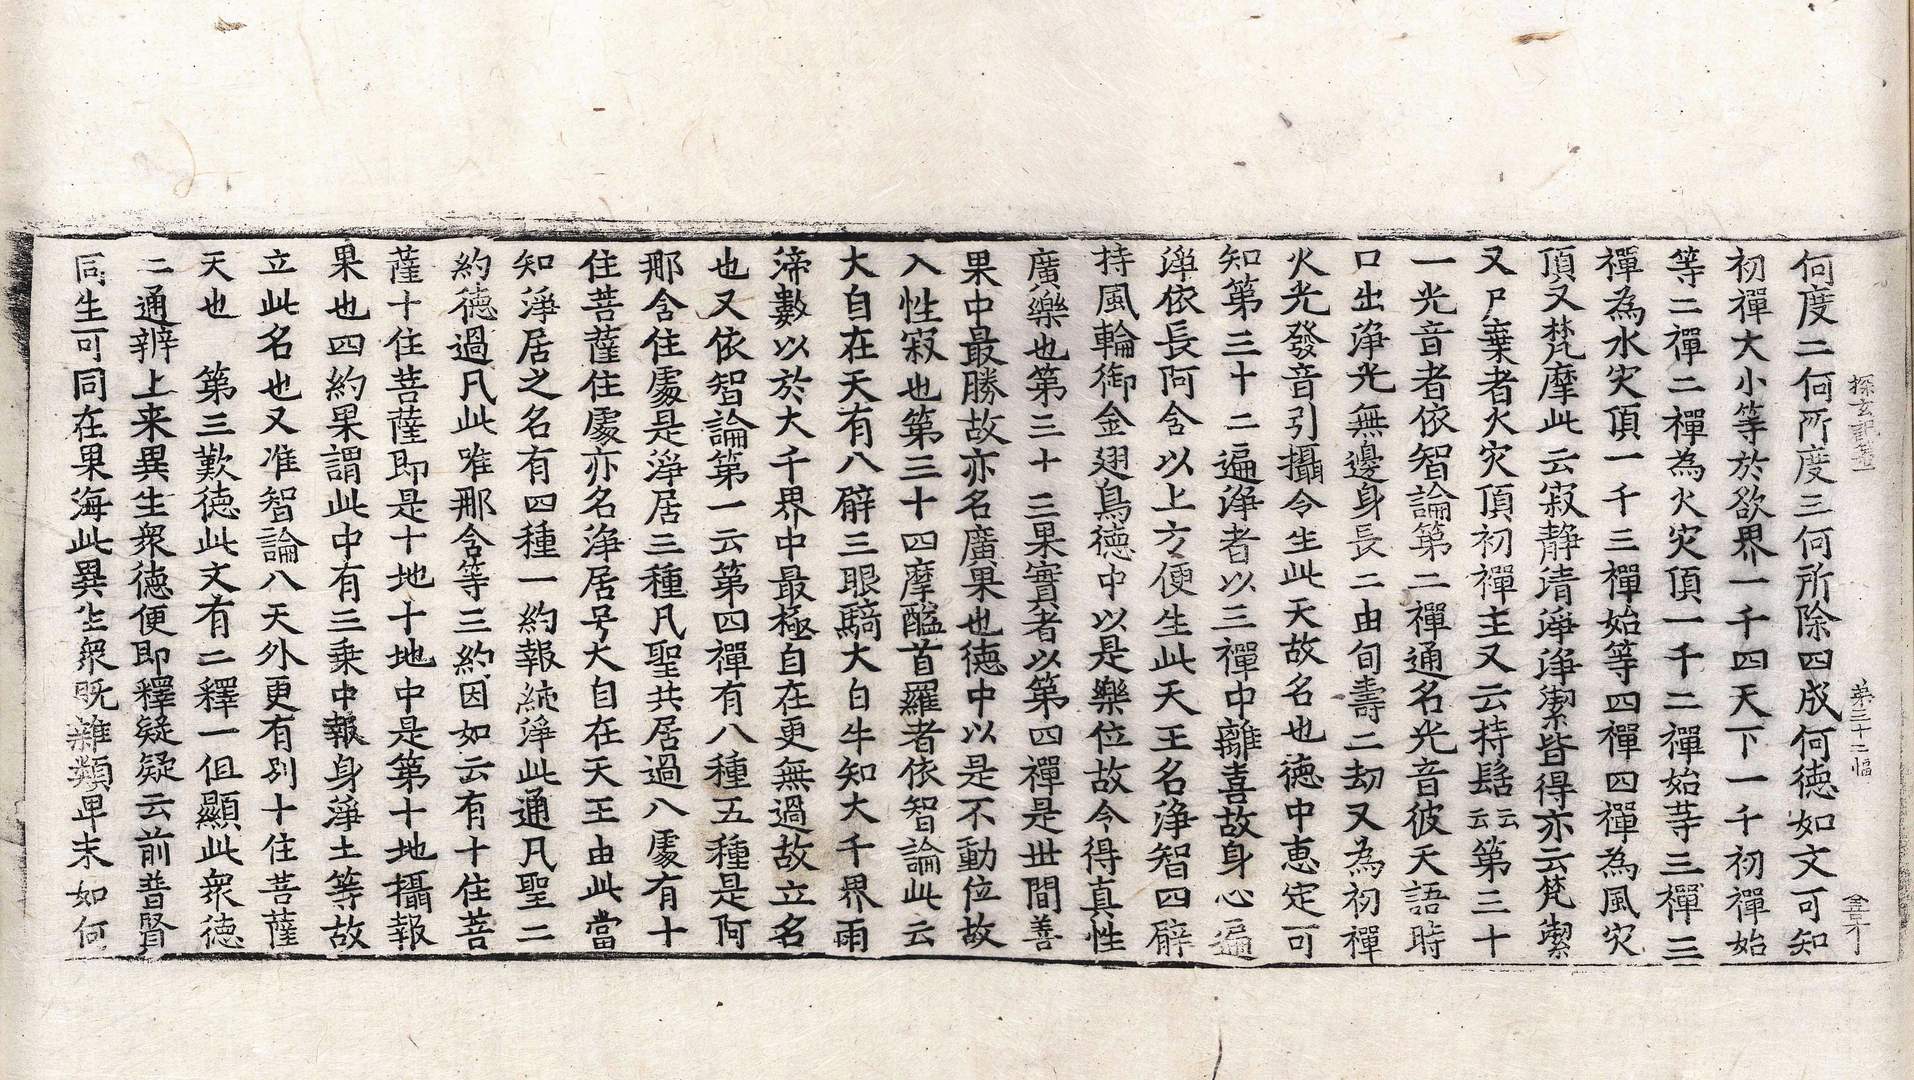 探玄記第二 第三十二幅 金才
何度二何所度三何所除四成何德如文可知
初禪大小等於欲界一千四天下一千初禪始
等二禪二禪為火灾頂一千二禪始等三禪三
禪為水灾頂一千三禪始等四禪四禪為風灾
頂又梵摩此云寂靜清淨淨潔皆得亦云梵潔
又尸棄者火灾頂初禪主又云持髻云云第三十
一光音者依智論第二禪通名光音彼天語時
口出淨光無邊身長二由旬壽二劫又為初禪
火光發音引攝令生此天故名也德中惠定可
知第三十二遍淨者以三禪中離喜故身心遍
淨依長阿含以上方便生此天王名淨智四臂
持風輪御金翅鳥德中以是樂位故今得真性
廣樂也第三十三果實者以第四禪是世間善
果中最勝故亦名廣果也德中以是不動位故
入性寂也第三十四摩醯首羅者依智論此云
大自在天有八臂三眼騎大白牛知大千界雨
渧數以於大千界中最極自在更無過故立名
也又依智論第一云第四禪有八種五種是阿
那含住處是淨居三種凡聖共居過八處有十
住菩薩住處亦名淨居号大自在天王由此當
知淨居之名有四種一約報純淨此通凡聖二
約德過凡此唯那含等三約因如云有十住菩
薩十住菩薩即是十地十地中是第十地攝報
果也四約果謂此中有三乘中報身淨土等故
立此名也又准智論八天外更有別十住菩薩
天也 第三歎德此文有二釋一但顯此衆德
二通辨上来異生衆德便即釋疑疑云前普賢
同生可同在果海此異生衆既雜類卑末如何